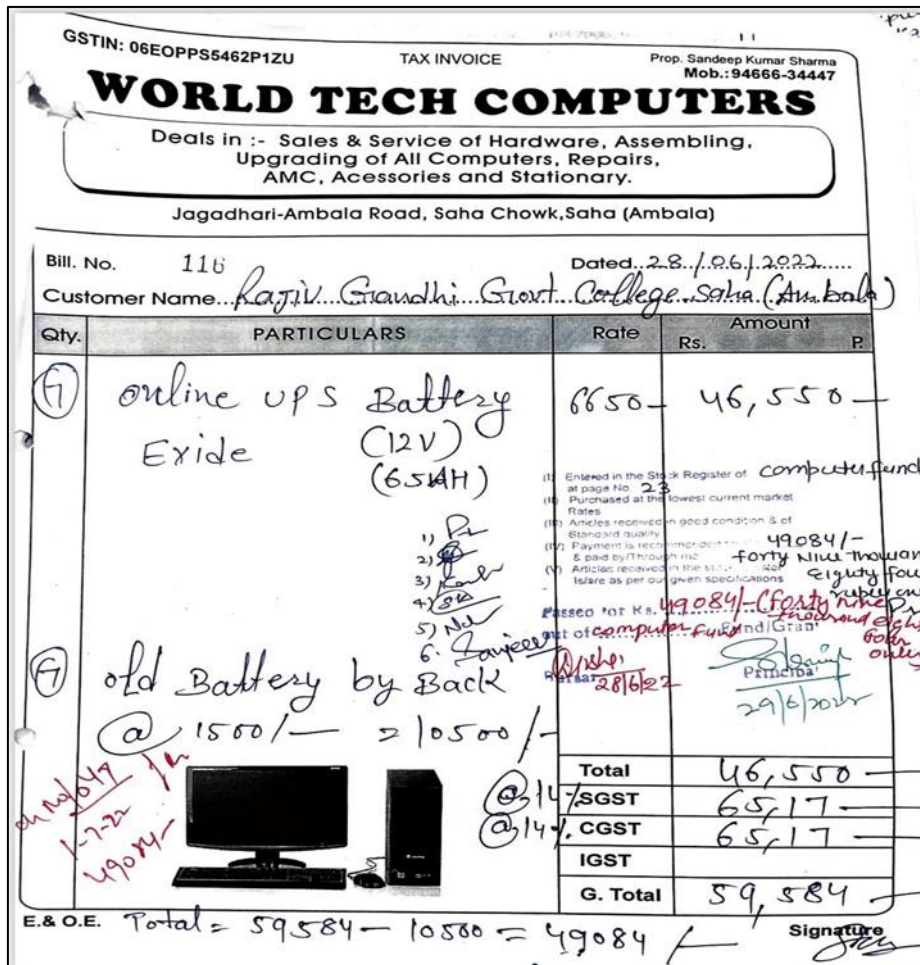 GSTIN: 06EOPPS5462P1ZU TAX INVOICE Prop. Sandeep Kumar Sharma
Mob.:94666-34447
WORLD TECH COMPUTERS
Deals in :- Sales & Service of Hardware, Assembling,
Upgrading of All Computers, Repairs,
AMC, Acessories and Stationary.
Jagadhari-Ambala Road, Saha Chowk,Saha (Ambala)
Bill. No. 116 Dated..28/06/2022
Customer Name...Rajiv Gandhi Govt College Saha (Ambala)
Qty. PARTICULARS Rate Amount
Rs. P.
7 online UPS Battery 6650 — 46,550 —
Exide (12V)
(65AH)
(I) Entered in the Stock Register of computer fund
at page No. 23
(II) Purchased at the lowest current market
Rates
(III) Articles received in good condition & of
Standard quality
(IV) Payment is recommended 49084/-
& paid by/Through me forty Nine thousand
(V) Articles received in the eighty four
Is/are as per our given specifications rupees only
Passed for Rs. 49084/- (forty nine
thousand eighty
four
only
out of computer fund Fund/Gran
1)
2)
3)
4)
5)
6. Sanjeev
Bursar Principal
28/6/22 29/6/2022
7 old Battery by Back
@ 1500/— = 10500/-
ch no/049
1-7-22
49084/-
Total 46,550 —
@ 14% SGST 65,17 —
@ 14% CGST 65,17 —
IGST
G. Total 59,584 —
E.& O.E. Total = 59584 — 10500 = 49084 /— Signature